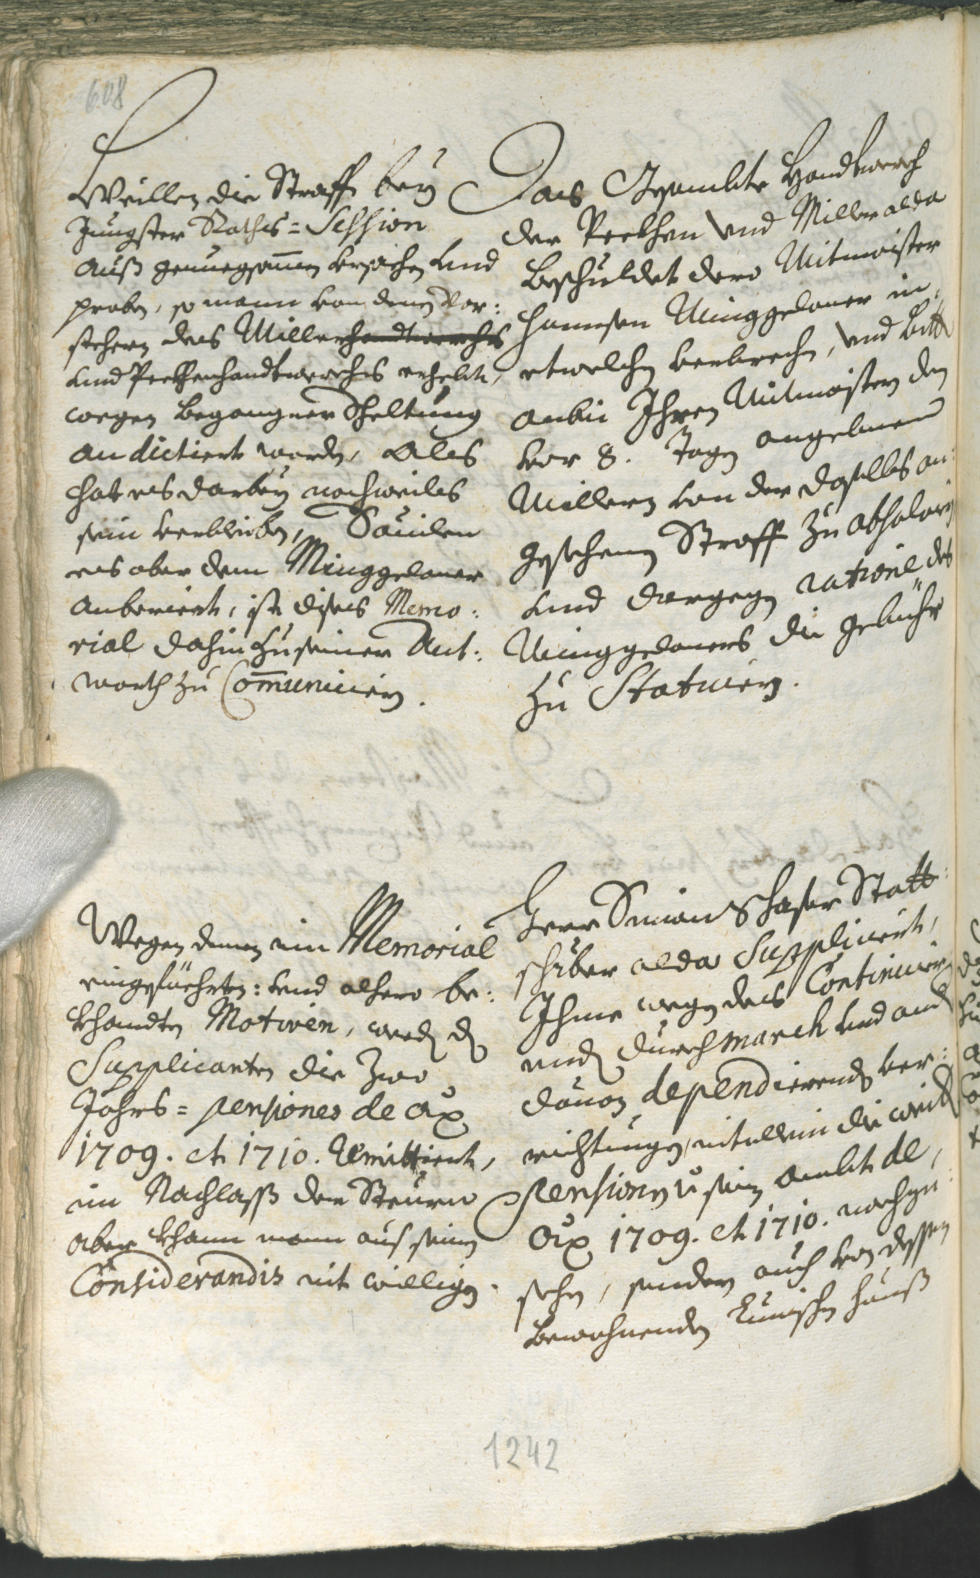 608
Weillen die Straff bey
Jungster Raths=Session
auß genuegsamen ursachen und
proben, so mann von denen Vor:
stehern des Millerhandtwerchs
und Peckhenhandtwerchs erhebt,
wegen begangner Scheltung
andictiert worden, Als
hat es darbey nochweils
sein verbleiben, Sovilen
es aber dem Minggelauer
anberiert, ist dises Memo:
rial dahin zu seiner Ant:
worth zu Communiciern.
Das Gesambte Handtwerch
der Peckhen und Miller alda
beschuldet dero Mitmaister
Hannsen Minggelauer in
etwelchen verbrechen, und bitt
anbei Ihren Mitmaistern den
vor 8. Tagen angelauer
Millern von der deselbs an:
gesehenen Straff zu absolvirn
und dargegen ratione des
Minggelauers die gebühr
zu Statuiern.
Wegen denen im Memorial
eingefüehrten: und alhero be:
khandten Motiven, werden dem
Supplicanten die zwo
Jahrs=pensiones de Aõ
1709. et 1710. Remittiert,
im Nachlaß der Steuern
aber khann mann aus seinen
Considerandis nit willigen.
Herr Simian Schafer Statt
schreiber alda Suppliciert,
Ihme wegen des Continuier
enden durchmarch und and
davon dependierenden ver:
richtungen, nit allein die
Pension sein ambt de
Aõ 1709. et 1710. nachzu
sehen, sondern auch von dessen
bewohnenden hauß
1242